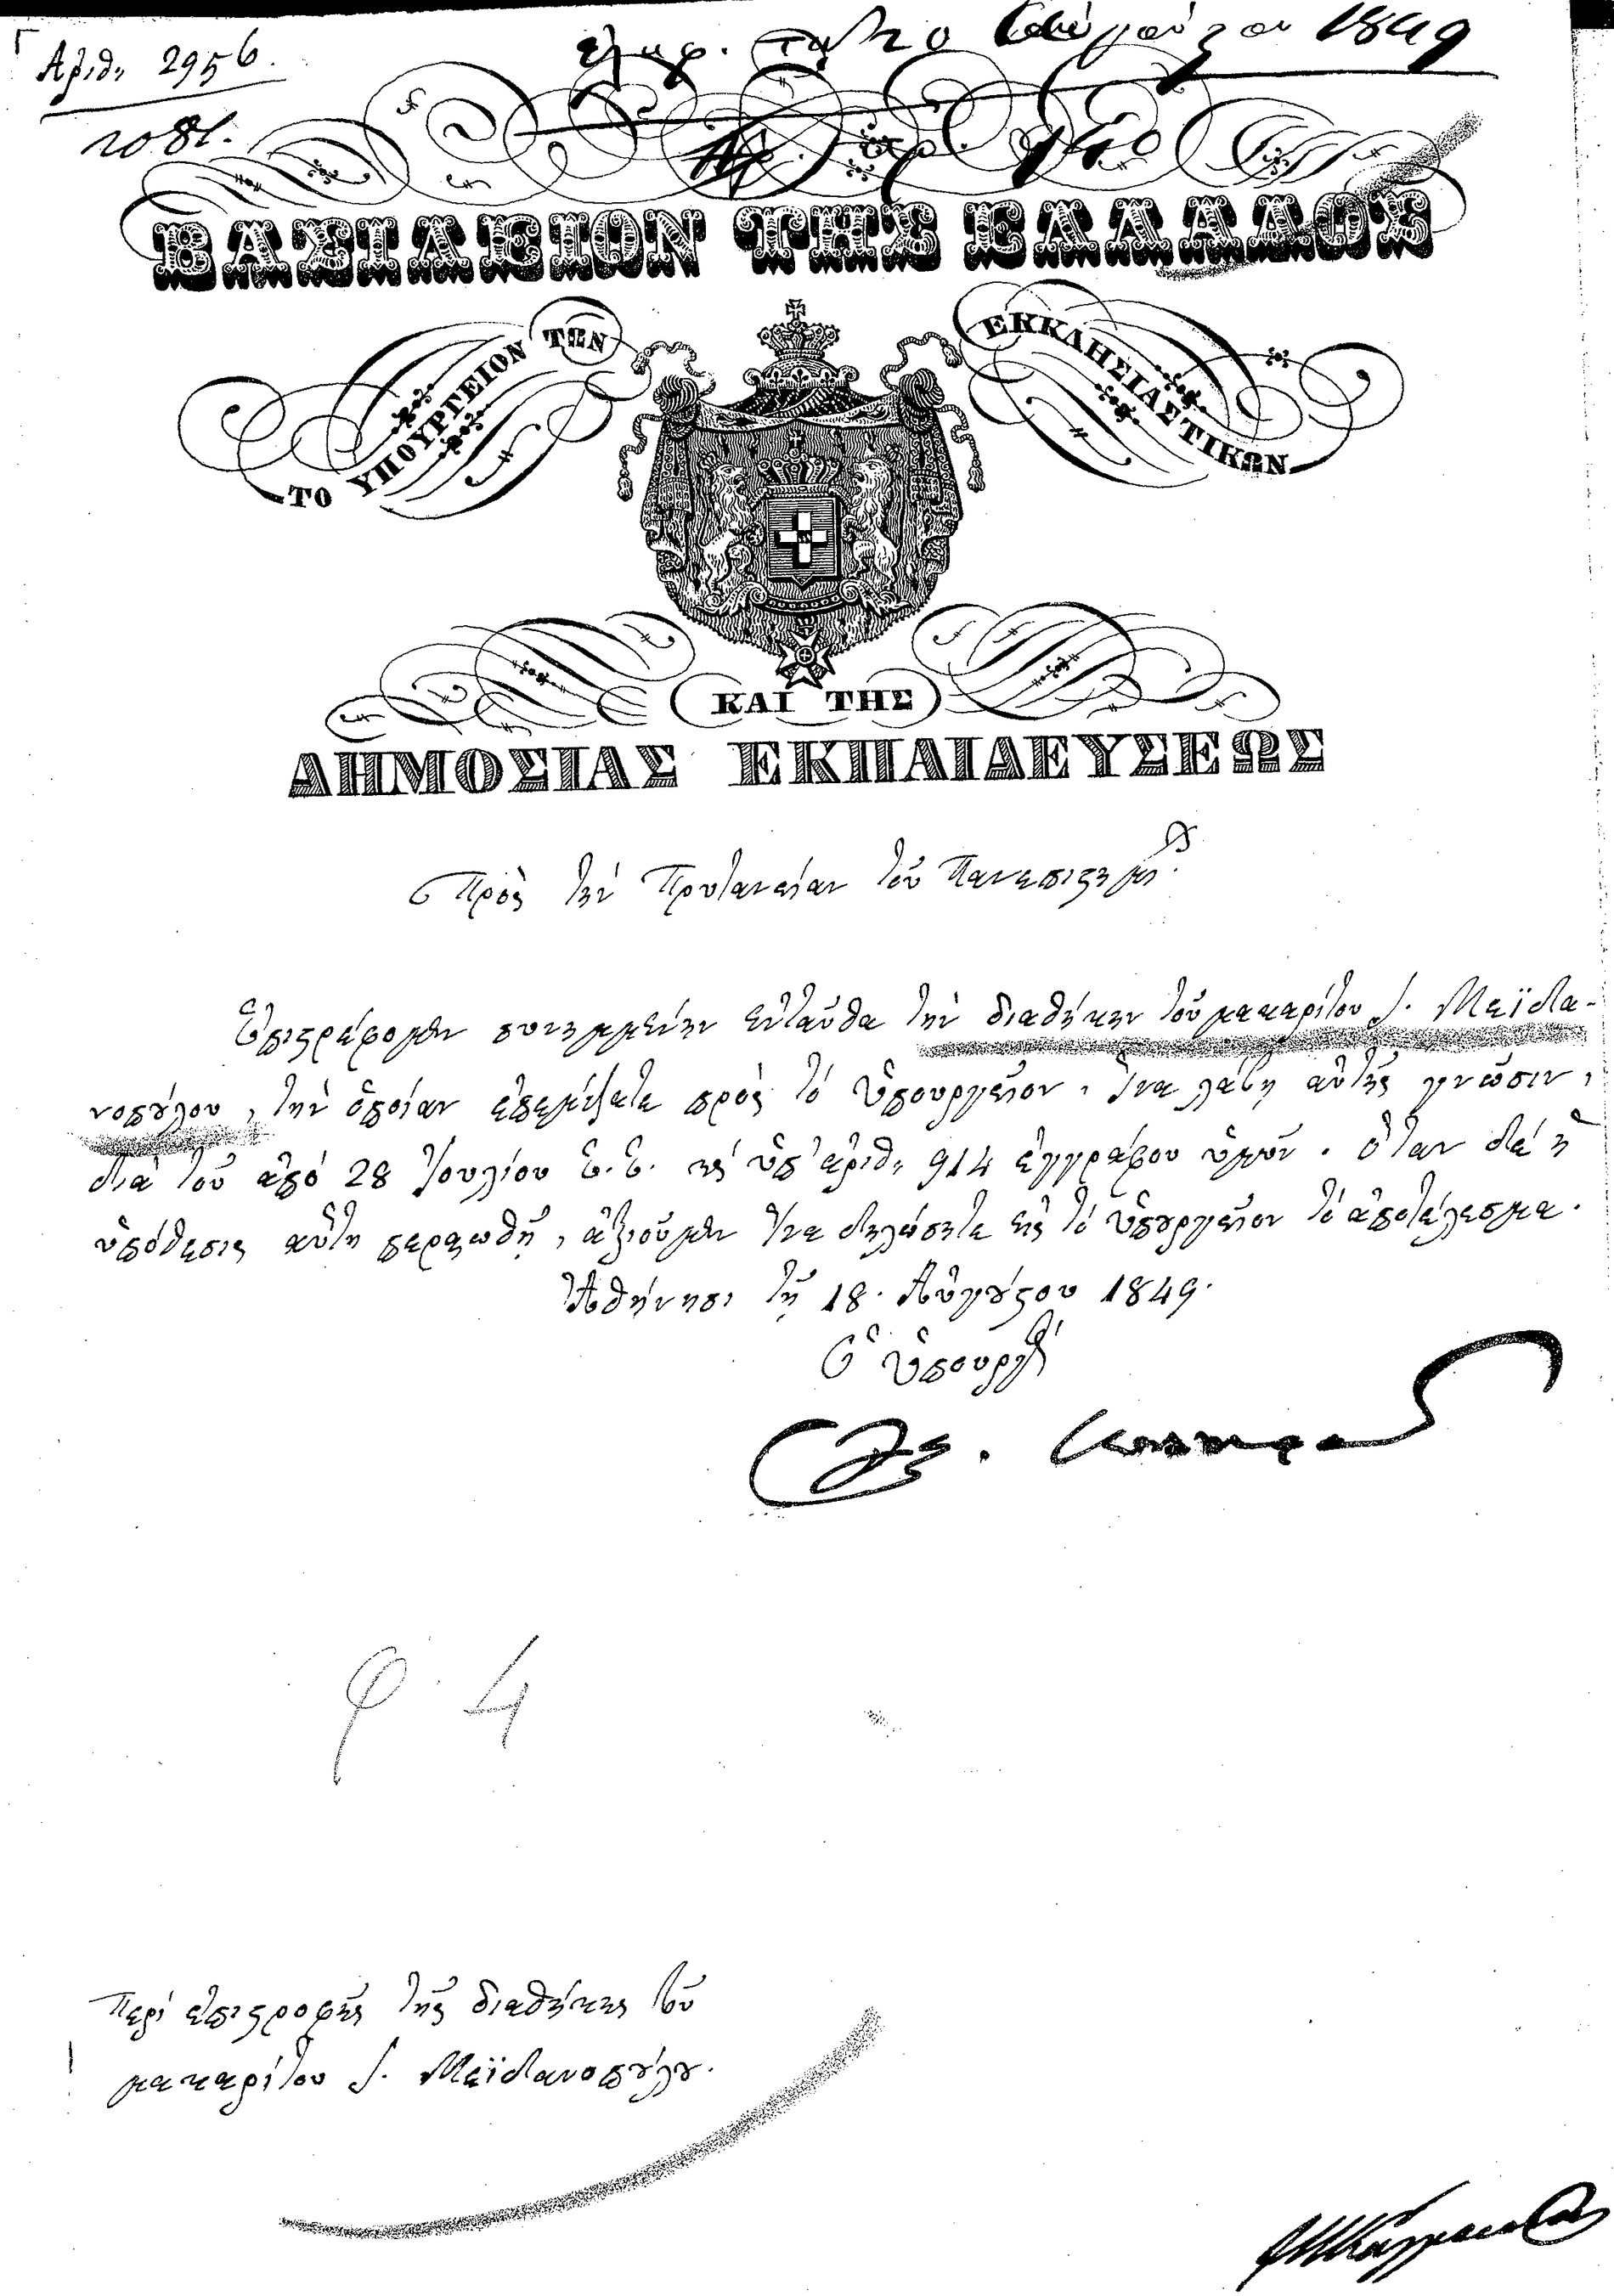 Ἀριθ. 2956.
1849
ΒΑΣΙΛΕΙΟΝ ΤΗΣ ΕΛΛΑΔΟΣ
ΤΟ ΥΠΟΥΡΓΕΙΟΝ ΤΩΝ ΕΚΚΛΗΣΙΑΣΤΙΚΩΝ
ΚΑΙ ΤΗΣ
ΔΗΜΟΣΙΑΣ ΕΚΠΑΙΔΕΥΣΕΩΣ
Πρὸς τὴν Πρυτανείαν τοῦ Πανεπιστημίου
Ἐπιστρέφομεν συνημμένην ἐνταῦθα τὴν διαθήκην τοῦ μακαρίτου Ι. Μεϊδα-
νοπούλου, τὴν ὁποίαν ἐπέμψατε πρὸς τὸ Ὑπουργεῖον, ἵνα λάβῃ αὐτῆς γνῶσιν,
διὰ τοῦ ἀπὸ 28 Ἰουλίου ἐ.ἐ. καὶ ὑπ' ἀριθ. 914 ἐγγράφου ὑμῶν. Ὅταν δὲ ἡ
ὑπόθεσις αὕτη περαιωθῇ, ἀξιοῦμεν ἵνα δηλώσητε εἰς τὸ Ὑπουργεῖον τὸ ἀποτέλεσμα.
Ἀθήνησι τῇ 18. Αὐγούστου 1849.
Ὁ Ὑπουργὸς
Φ. 4
Περὶ ἐπιστροφῆς τῆς διαθήκης τοῦ
μακαρίτου Ι. Μεϊδανοπούλου.